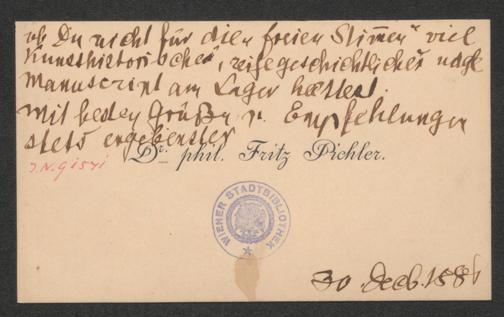 ob Du nicht für die „freien Stimmen" viel
Kunsthistorisches, reisegeschichtliches
Manuscript am Lager hättest.
Mit besten Grüßen u. Empfehlungen
stets ergebenster
Dr. phil. Fritz Pichler.
WIENER STADTBIBLIOTHEK
30. Decb. 188